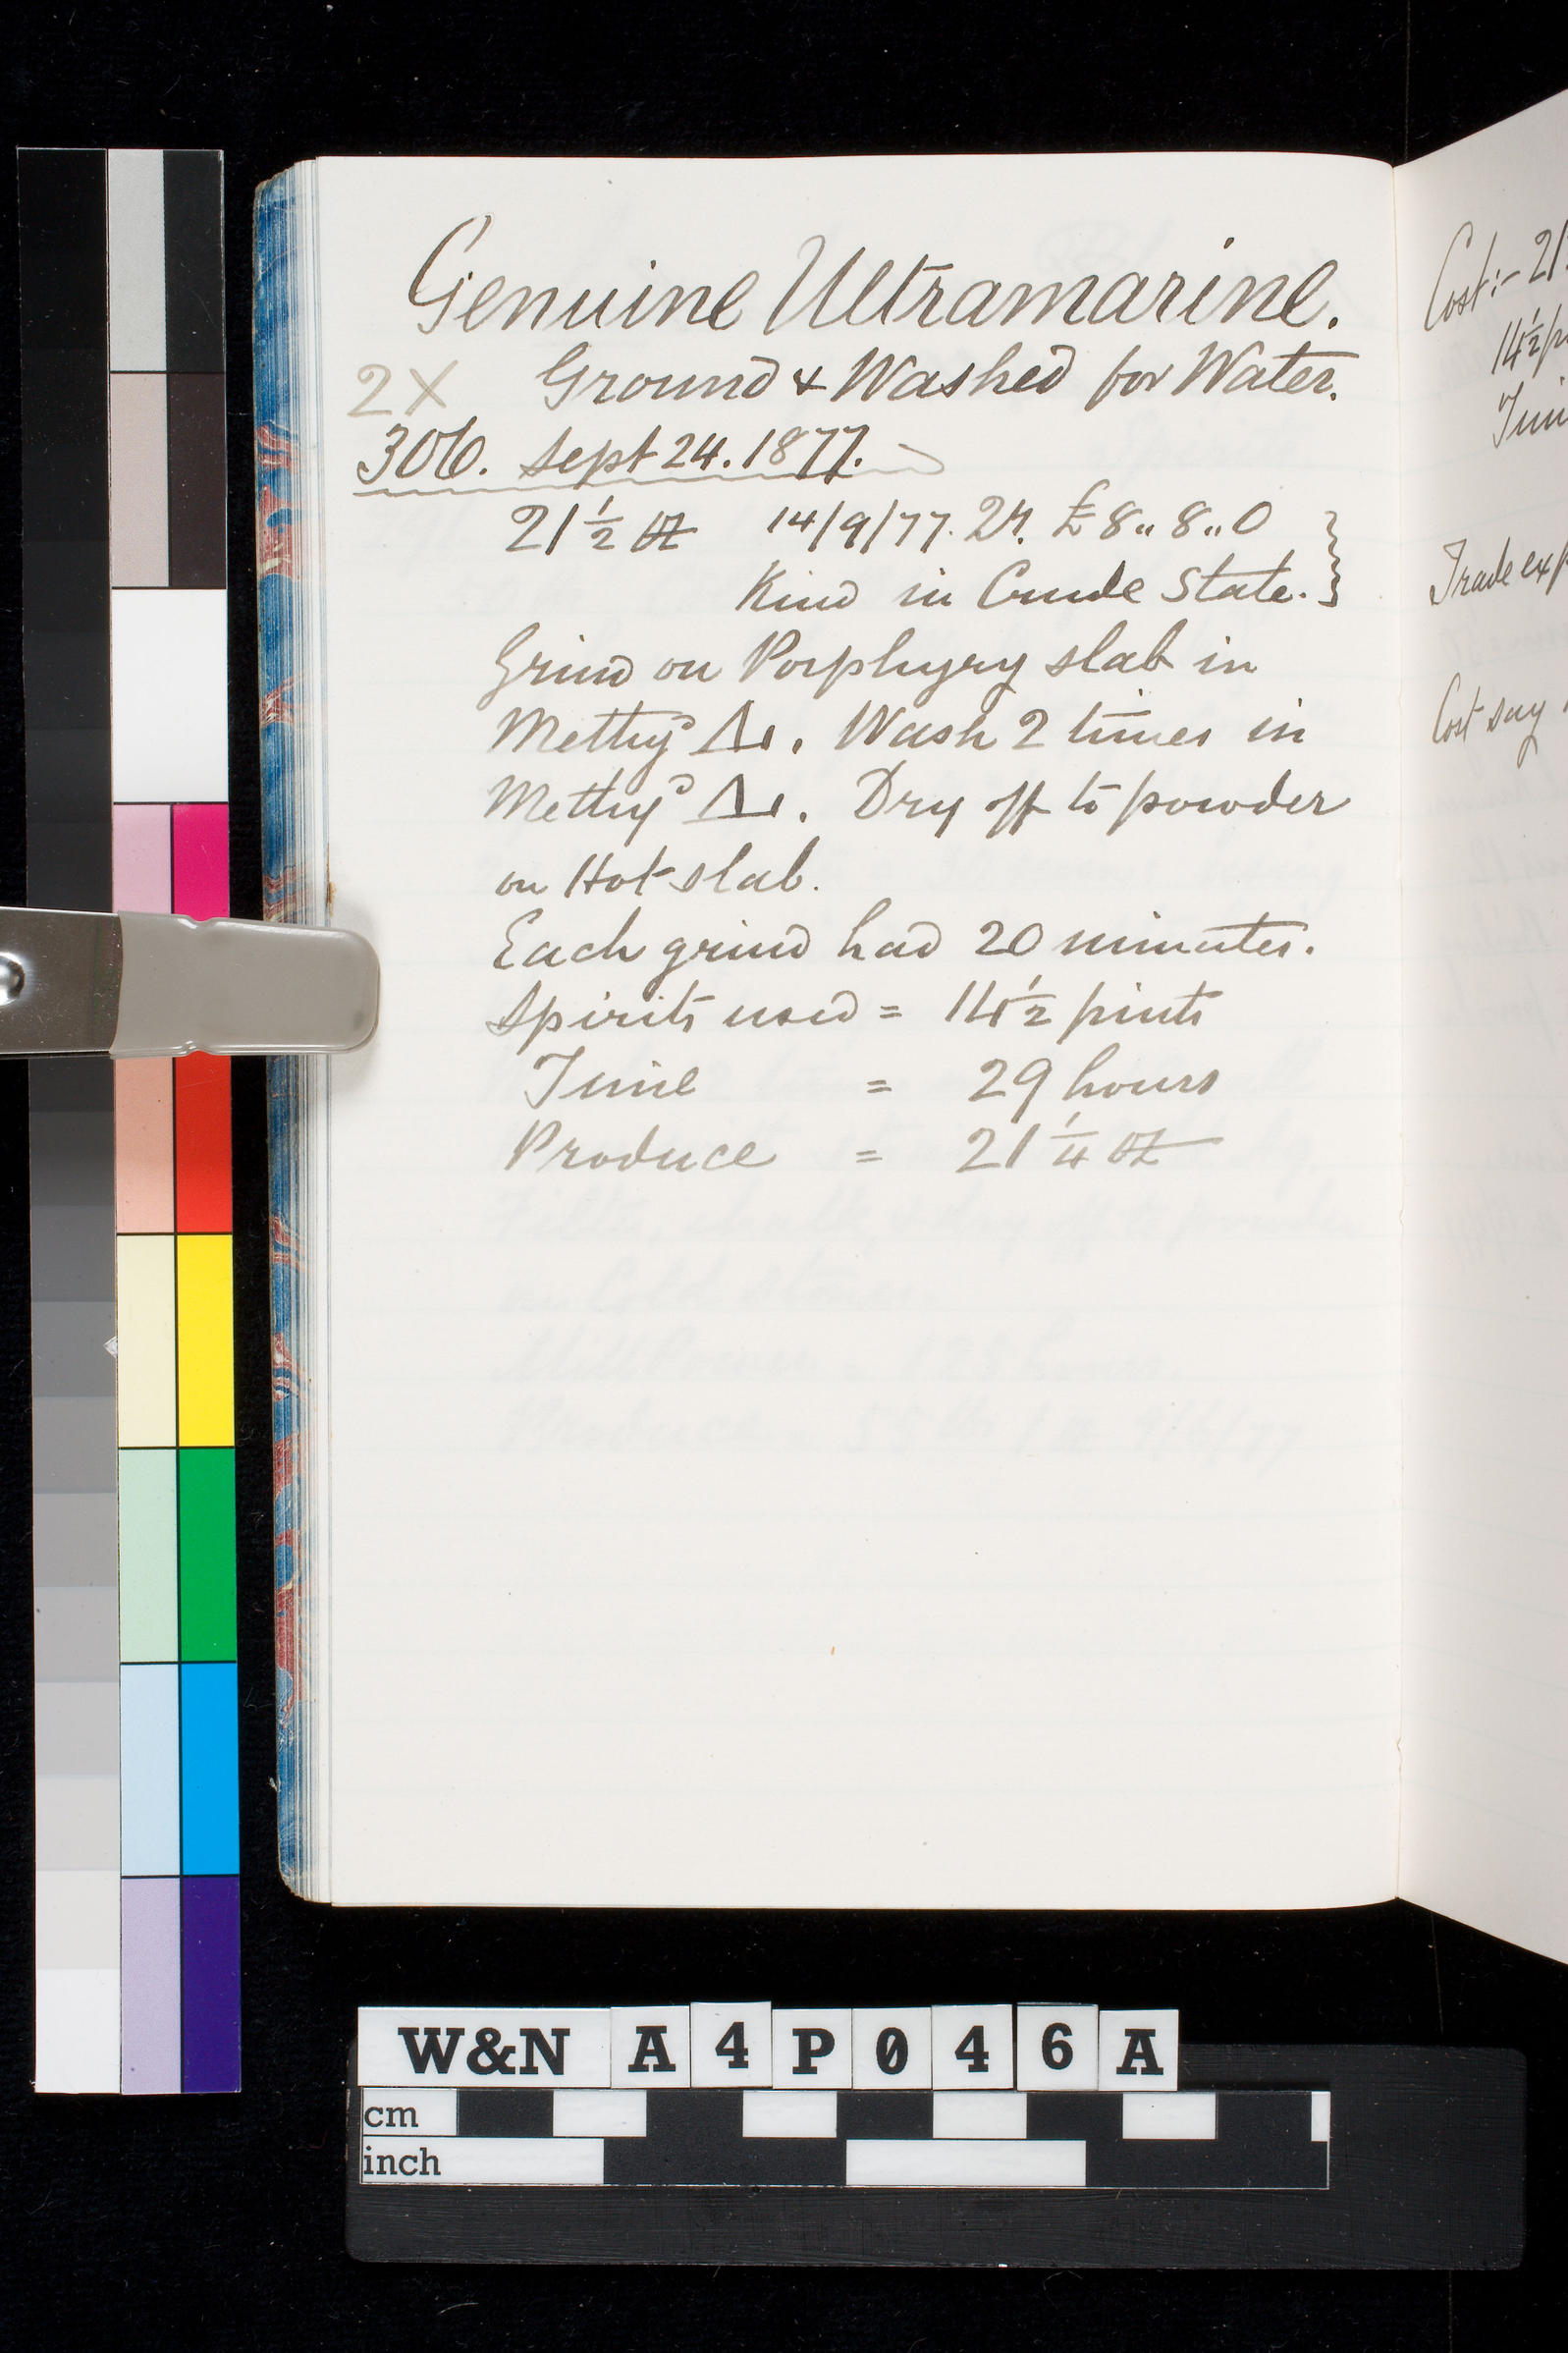 Genuine Ultramarine.
2X Ground & Washed for Water.
306. Sept 24. 1877.
21 1/2 oz 14/9/77. £8,,8,,0
Kind in Crude State.
Grind on Porphyry slab in
Methyd . Wash 2 times in
Methyd . Dry off to powder
on Hot slab.
Each grind had 20 minutes.
Spirits used = 14 1/2 pints
Time = 29 hours
Produce = 21 1/4 oz
Cost:- 21
14 1/2
Trade
Cost say
W&N A4P046A
cm
inch